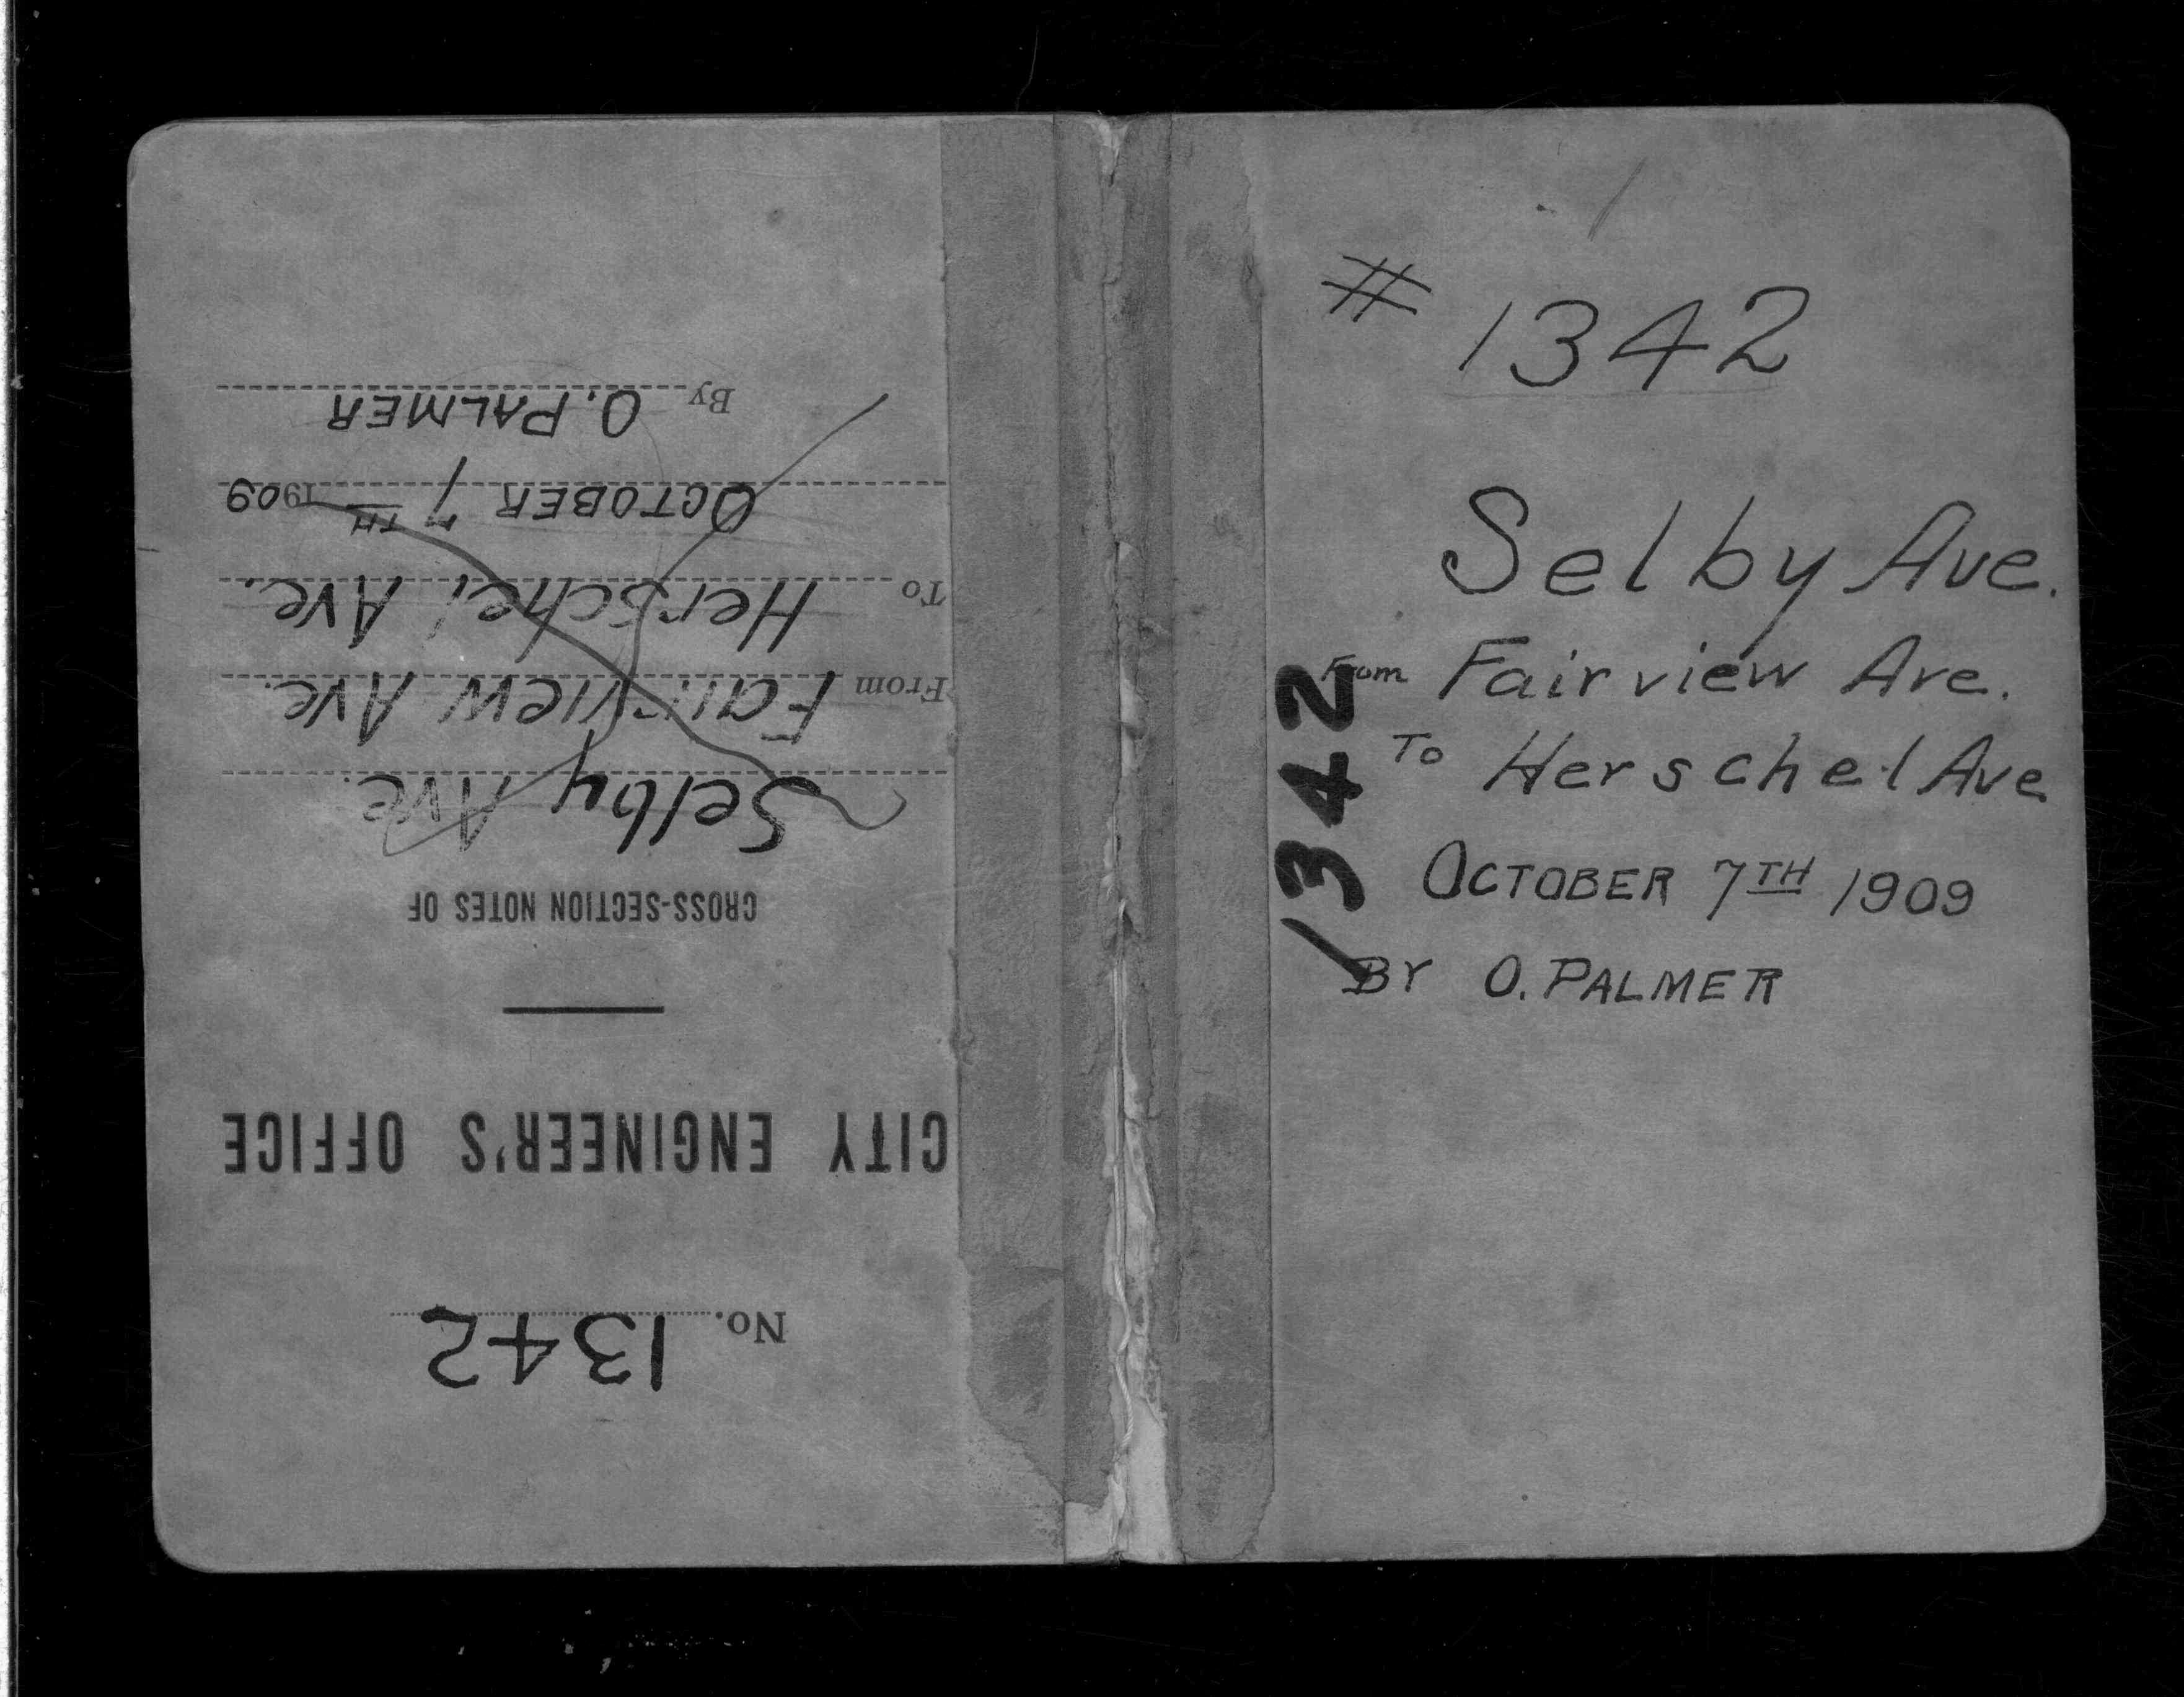 No. 1342
CITY ENGINEER'S OFFICE
CROSS-SECTION NOTES OF
Selby Ave.
From Fairview Ave.
To Herschel Ave.
OCTOBER 7TH 1909
By O. PALMER
# 1342
Selby Ave.
From Fairview Ave.
To Herschel Ave
OCTOBER 7TH 1909
BY O. PALMER
1342